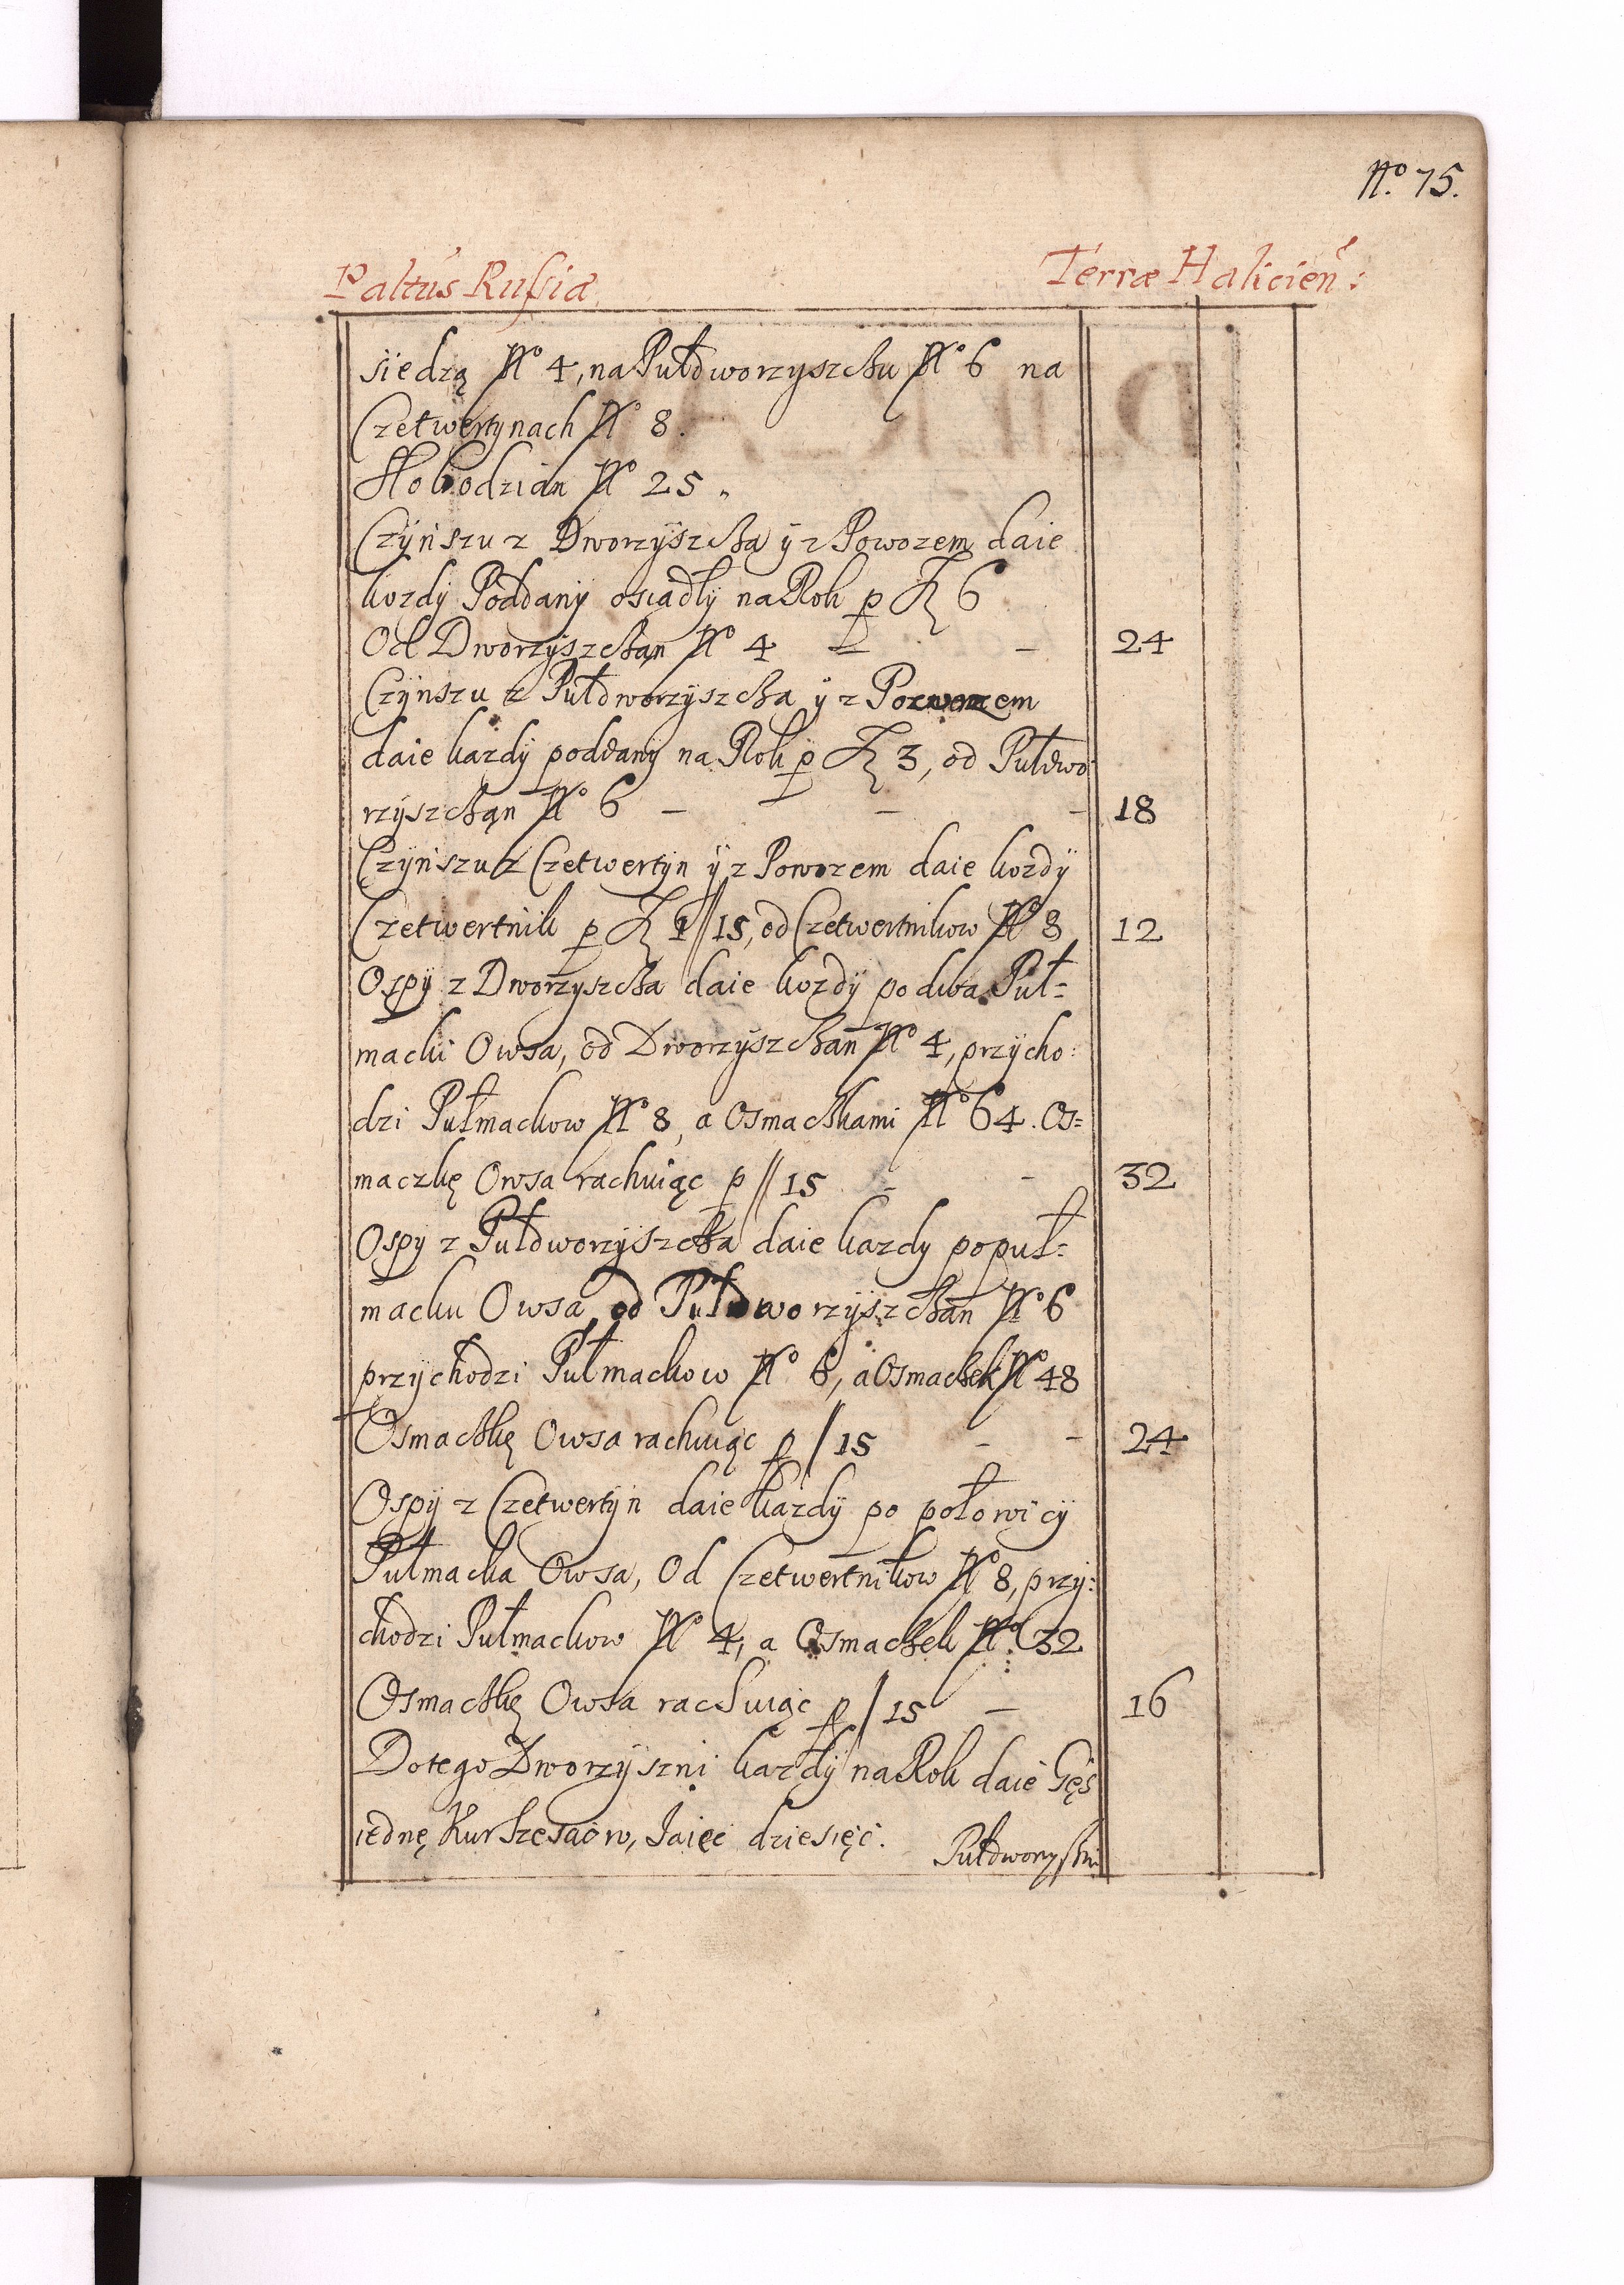 No. 75.
Paltus Russiæ Terræ Halicień:
siedzą No 4, na Pułdworzyszchu No 6 na
Czetwertynach No 8.
Słobodzian No 25.
Czÿnszu z Dworzÿszcha ÿ z Powozem daie
kozdÿ Poddanÿ osiadłÿ na Rok p Zł 6
Od Dworzyszchan No 4 – – 24
Czÿnszu z Pułdworzyszcha ÿ z Powozem
daie kazdÿ poddanÿ na Rok p Zł 3, od Pułdwo
rzÿszchan No 6 – – – 18
Czÿnszu z Czetwertÿn ÿ z Powozem daie kozdÿ
Czetwertnik p Zł 1//15, od Czetwertnikow No 8 12
Ospÿ z Dworzyszcha daie kozdÿ po dwa Puł=
macki Owsa, od Dworzyszchan No 4, przÿcho:
dzi Pułmackow No 8, a Osmachkami No 64. Os=
maczkę Owsa rachuiąc p // 15 – – 32
Ospy z Pułdworzÿszcha daie kazdy po puł=
macku Owsa, od Pułdworzÿszchan No 6
przychodzi Pułmackow No 6, a Osmachek No 48
Osmachkę Owsa rachuiąc p / 15 – – 24
Ospÿ z Czetwertÿn daie kazdÿ po połowicÿ
Pułmacka Owsa, Od Czetwertnikow No 8, przy:
chodzi Pułmackow No 4, a Osmachek No 32
Osmachkę Owsa rachuiąc p / 15 – 16
Do tego Dworzÿszni kazdÿ na Rok daie Gęś
iednę, Kur Szesciоro, Jaiec dziesięć.
Pułdworzyszni